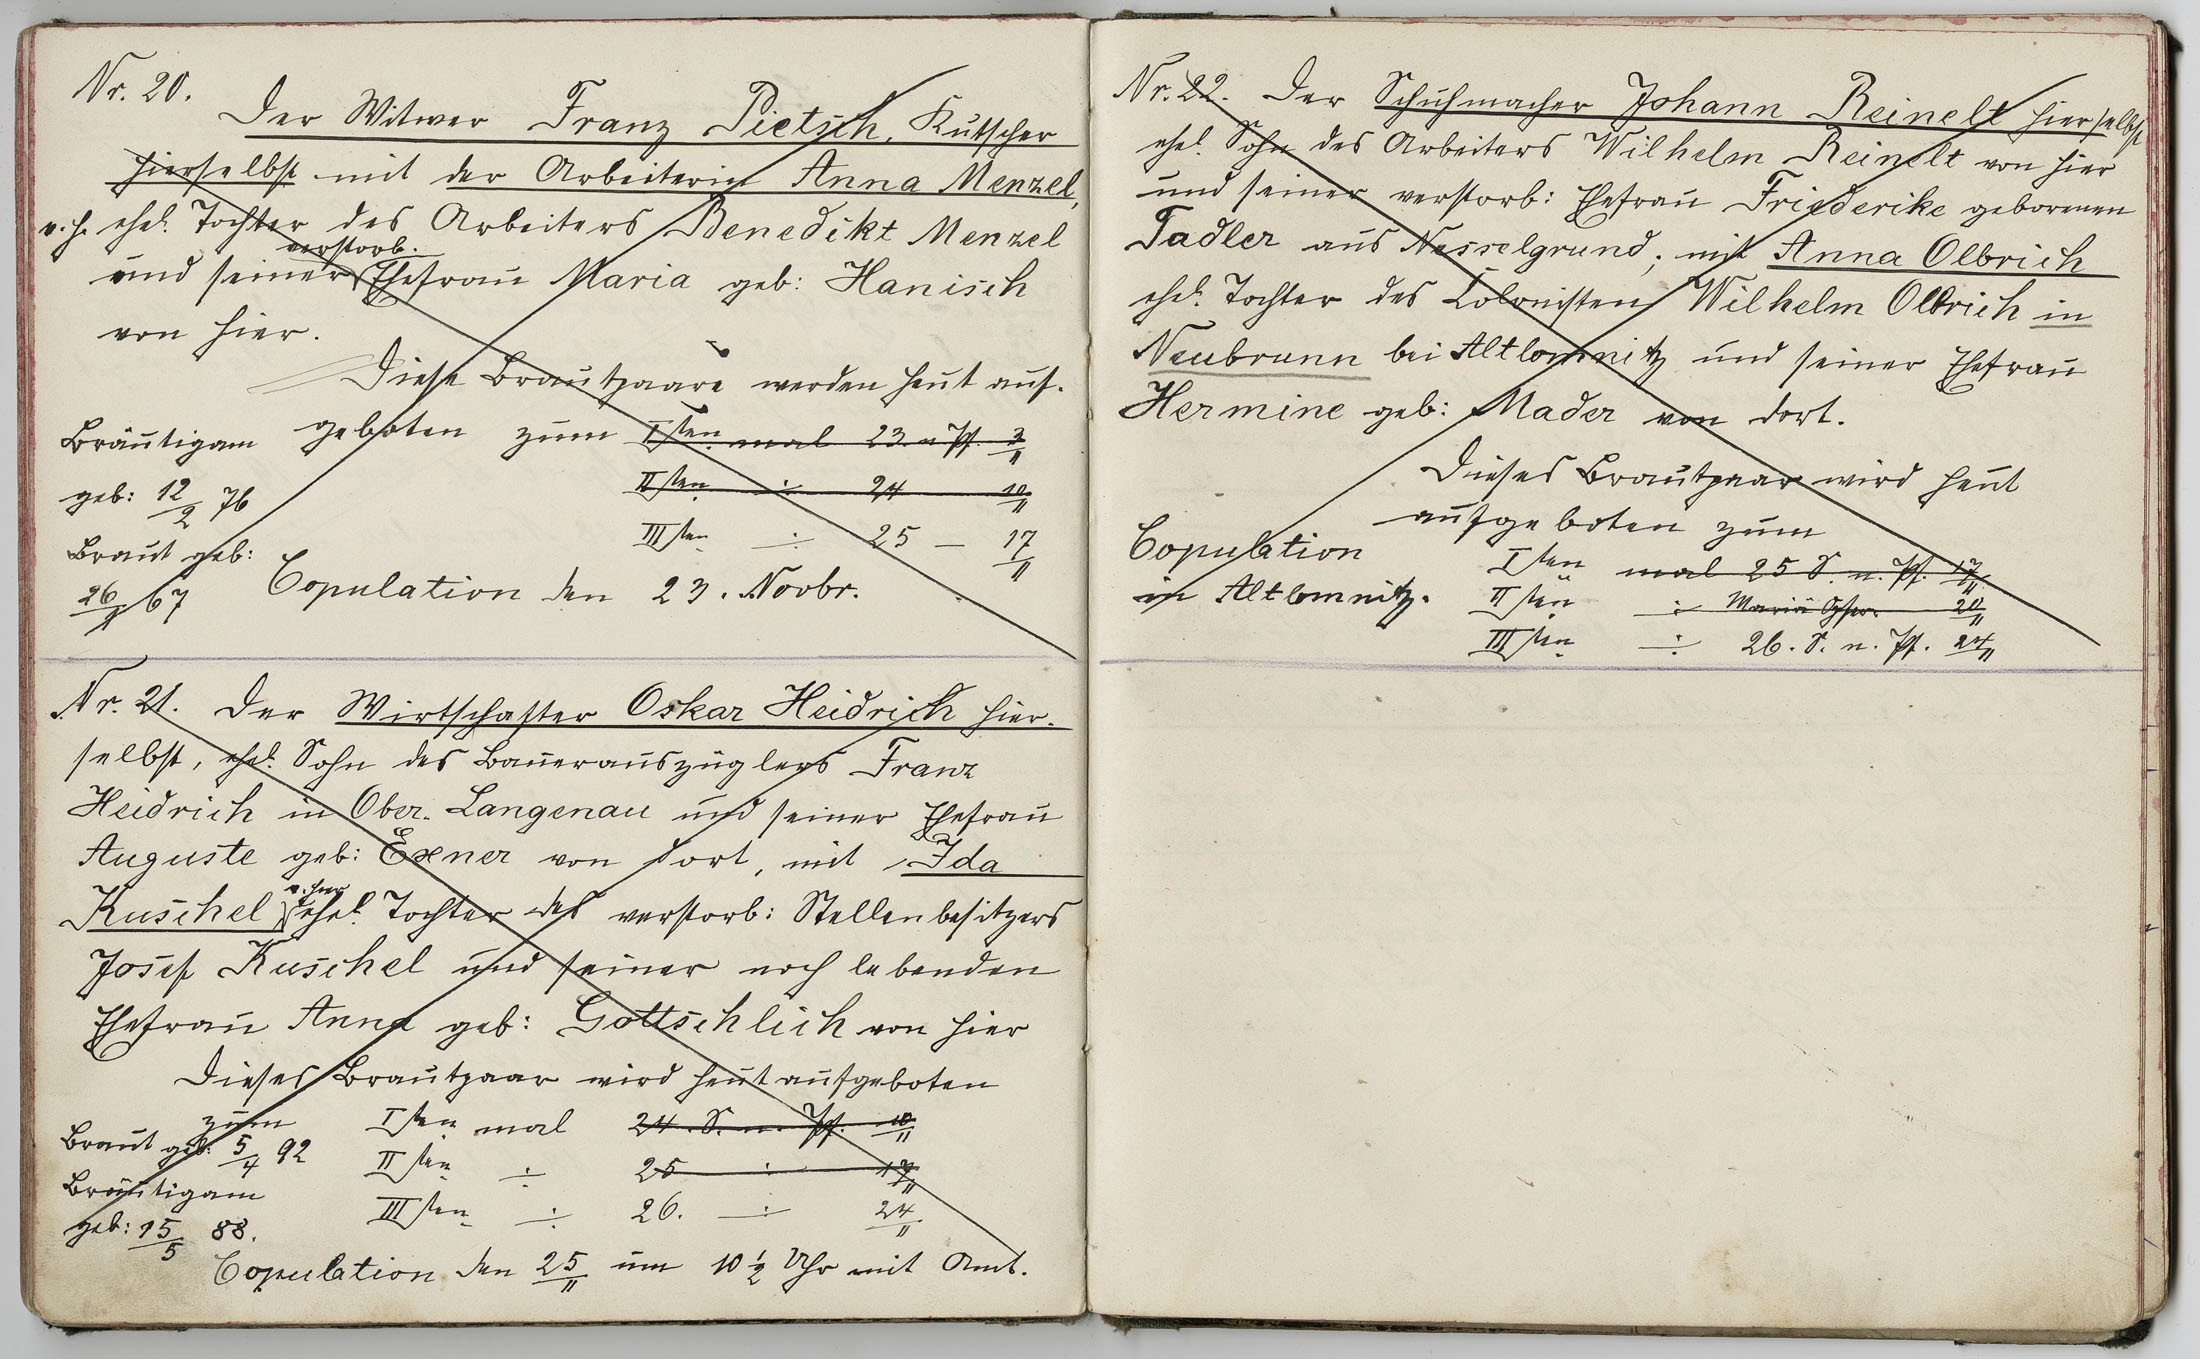 Nr. 20.
Der Witwer Franz Pietsch, Kutscher
hierselbst mit der Arbeiterin Anna Menzel,
v. h. ehel. Tochter des Arbeiters Benedikt Menzel
verstorb.
und seiner Ehefrau Maria geb: Hanisch
von hier.
Diese Brautpaare werden heut auf-
geboten zum Isten mal 23. n. Pf. 3/11
IIsten ÷ 24 10/11
IIIsten ÷ 25 — 17/11
Bräutigam
geb: 12/2 76
Braut geb:
26/7 67
Copulation den 23. Novbr.
Nr. 21. Der Wirtschafter Oskar Heidrich hier-
selbst, ehel. Sohn des Bauerauszüglers Franz
Heidrich in Ober-Langenau und seiner Ehefrau
Auguste geb: Exner von dort, mit Ida
v. hier
Kuschel ehel. Tochter des verstorb: Stellenbesitzers
Josef Kuschel und seiner noch lebenden
Ehefrau Anna geb: Gottschlich von hier
Dieses Brautpaar wird heut aufgeboten
zum Isten mal 24. S. n. Pf. 10/11
IIsten ÷ 25 ÷ 17/11
IIIsten ÷ 26. ÷ 24/11
Braut geb: 5/4 92
Bräutigam
geb: 15/5 88.
Copulation den 25/11 um 10 1/2 Uhr mit Amt.
Nr. 22. Der Schuhmacher Johann Reinelt hierselbst
ehel. Sohn des Arbeiters Wilhelm Reinelt von hier
und seiner verstorb: Ehefrau Friederike geborenen
Tadler aus Nesselgrund, mit Anna Olbrich
ehel. Tochter des Colonisten Wilhelm Olbrich in
Neubrunn bei Altlomnitz und seiner Ehefrau
Hermine geb: Mader von dort.
Dieses Brautpaar wird heut
aufgeboten zum
Isten mal 25 S. n. Pf. 17/11
IIsten ÷ Mariä Opfer. 20/11
IIIsten ÷ 26. S. n. Pf. 24/11
Copulation
in Altlomnitz.